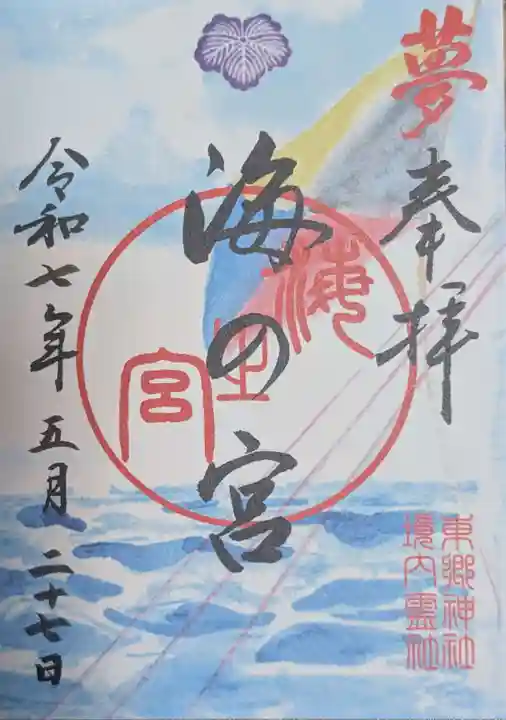 夢
奉拝
海の宮
海
之
宮
令和七年五月二十七日
東郷神社
境内霊社